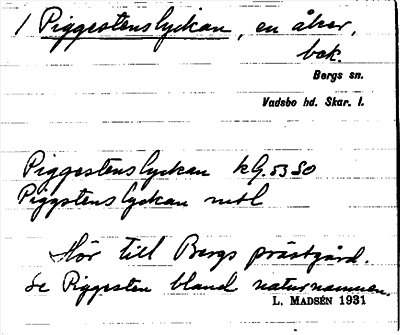 / Piggestenslyckan, en åker,
bok.
Bergs sn.
Vadsbo hd. Skar. l.
Piggestenslyckan kG. 53 SO
Piggstenslyckan mtl
Hör till Bergs prästgård.
Se Piggesten bland naturnamnen.
L. MADSÉN 1931